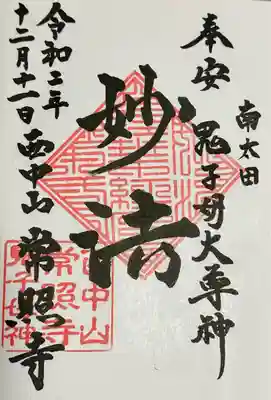 南太田
奉安 鬼子母大尊神
妙法
令和二年
十二月十一日
西中山 常照寺
西中山
常照寺
鬼子母神